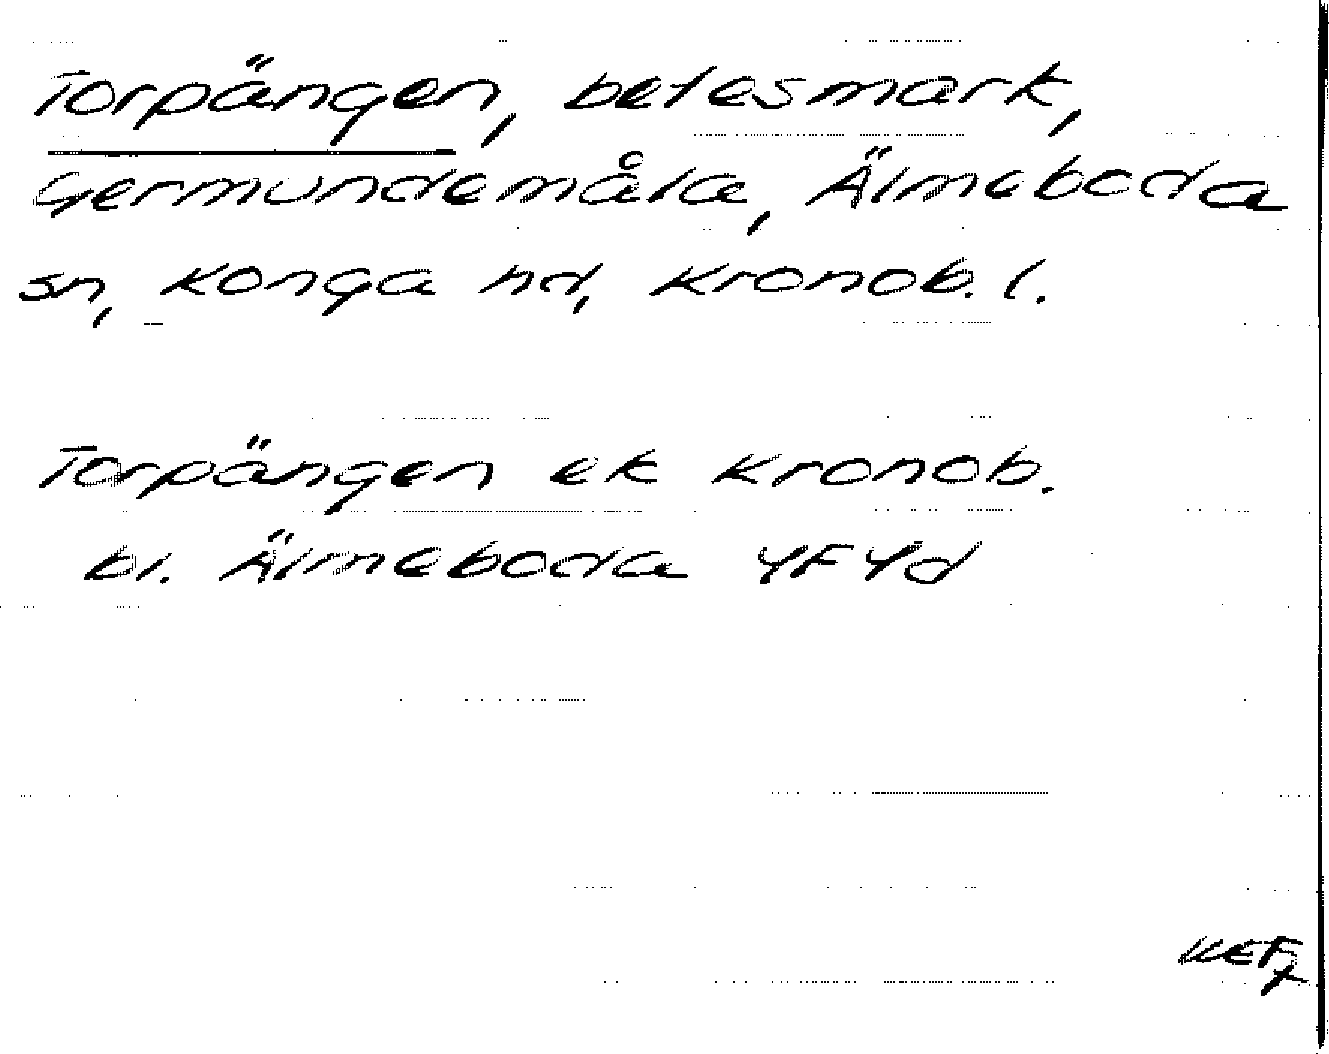 Torpängen, betesmark,
Germundemåla, Älmeboda
sn, Konga hd, Kronob. l.
Torpängen ek Kronob.
bl. Älmeboda 4F4d